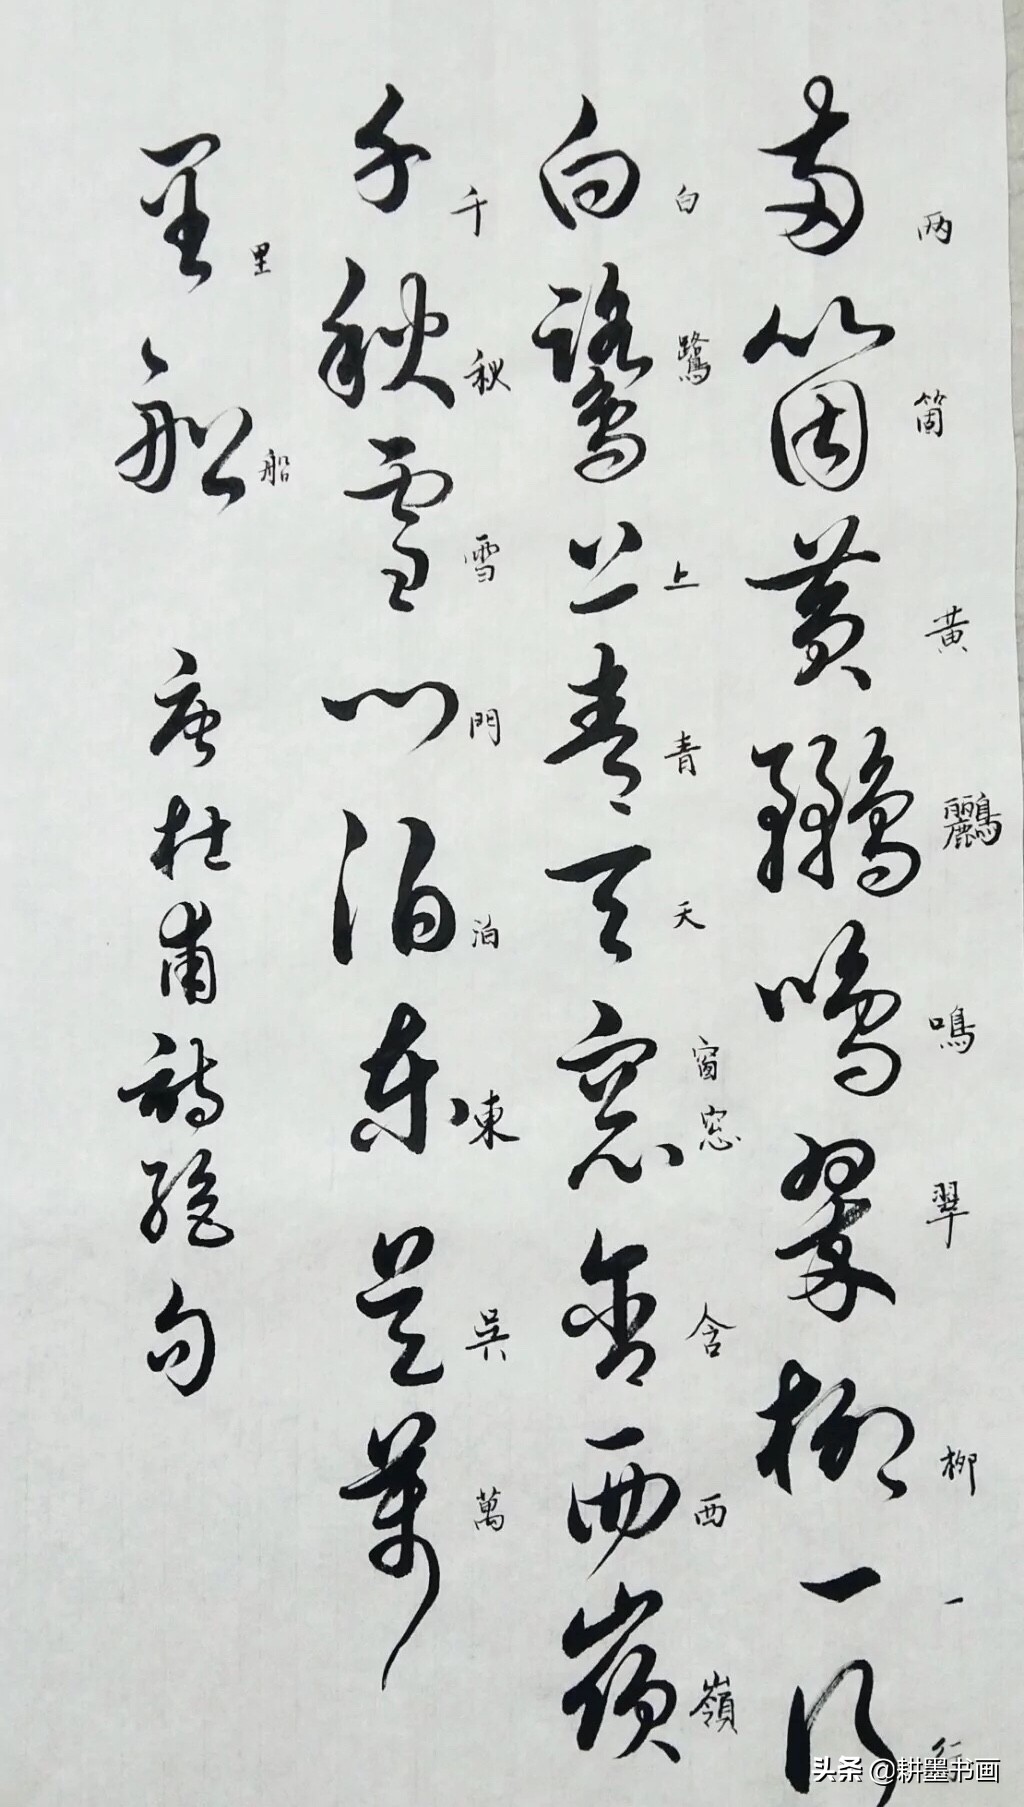 两箇黄鸝鳴翠柳一行
白鷺上青天窓含西嶺
千秋雪門泊東吳萬
里船 唐杜甫詩絕句
两
箇
黄
鸝
鳴
翠
柳
一
行
白
鷺
上
青
天
窗
窓
含
西
嶺
千
秋
雪
門
泊
東
吳
萬
里
船
头条 @耕墨书画